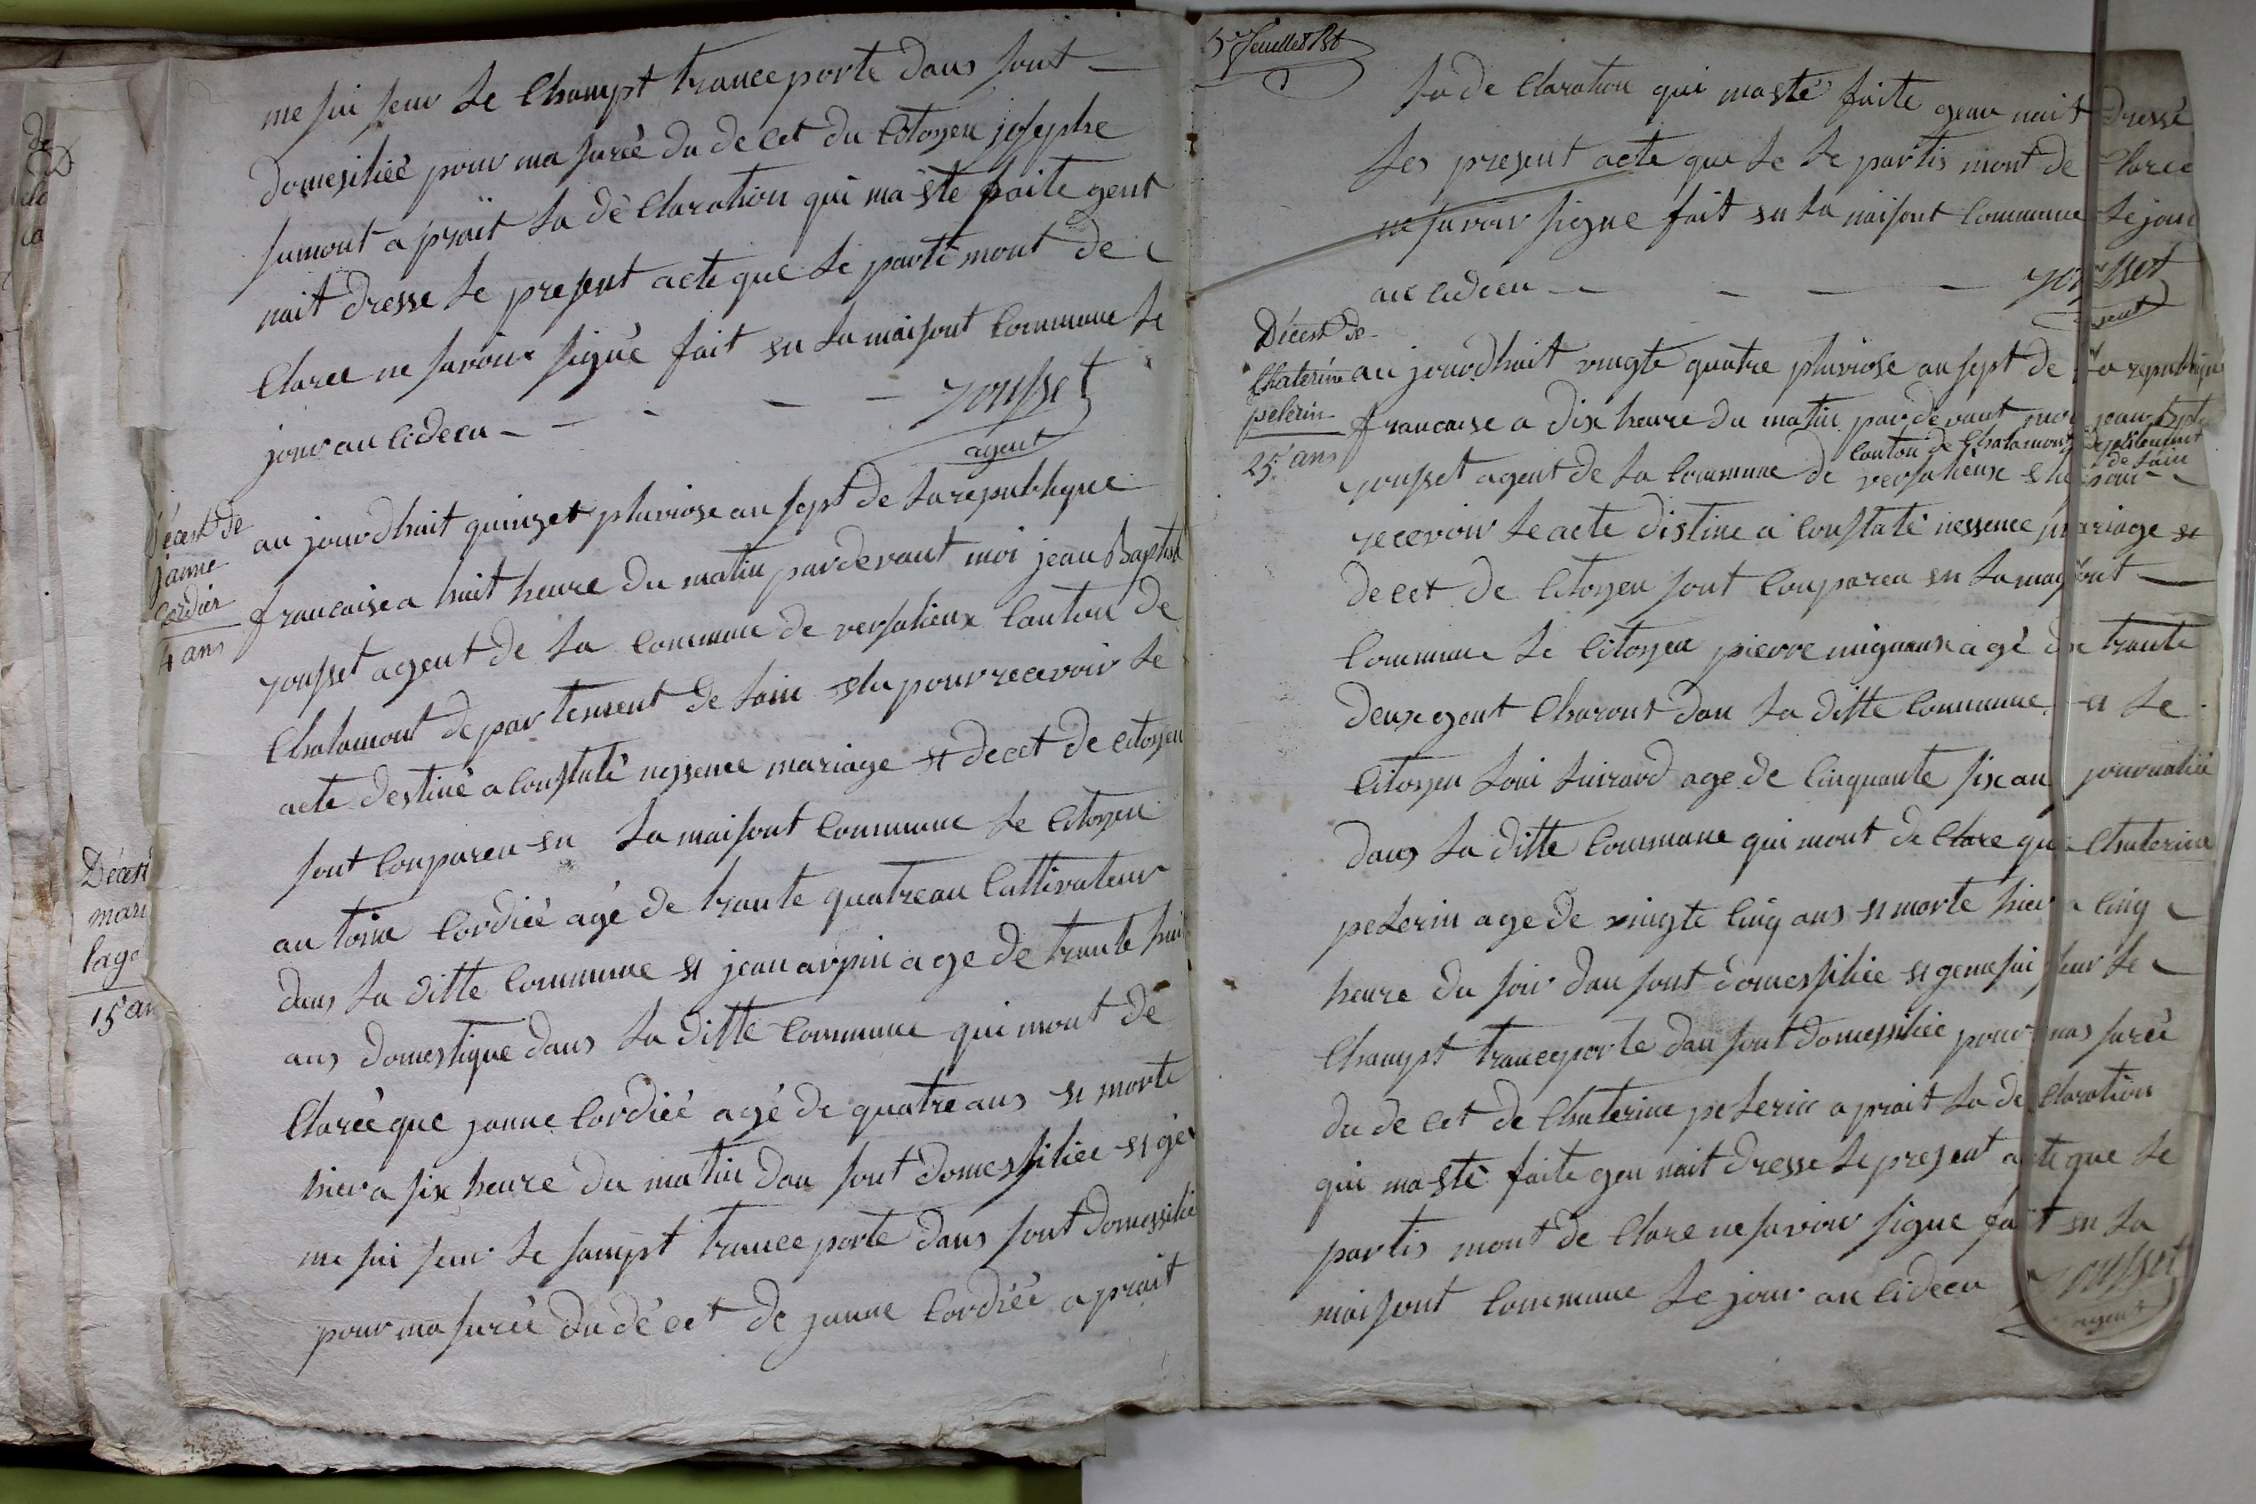 me sui seur le Champt tranceporte dans sont
domesiliéé pour ma surée du de cet du Citoyen josephe
jumont a prait la dé Claration qui ma été faite gent
nait dresse le present acte que le parti mont de
Claree ne savoire signé fait en la maisont Commune le
jour au cideeu
yousset
agent
Décest de
janne
cordier
4 ans
au jourdhuit quinzet pluviose an sept de la republique
francaise a huit heure du matin pardevant moi jean Baptist
yousset agent de la Commune de versalieux Canton de
Chalamont de partement de lain elu pour recevoir le
acte destiné a Constaté nessence mariage et decet de citoyen
sont Compareu en la maisont Commune le Citoyen
an toine Cordiéé agé de trante quatre an Cultivateur
dans la ditte Commune et jean arpin a ge de trante hui
ans domestique dans la ditte Commune qui mont dé
Clareé que janne Cordiéé agé de quatre ans et morte
hier a six heure du matin dan sont domessiliee et ge
me sui seur le sampt tranceporte dans sont domessilié
pour ma surée du dé cet de janne Cordiéé a prait
Décest
mari
laga
15 an
5e feuillet Bt
la de Claration qui ma été faite gean nait dressé
les present acte que le le partis mont de Claree
ne savoir signe fait en la maisont Commune le jour
au cideeu
yousset
agent
Décest de
Chaterine
pelerin
25 ans
au jourdhuit vingte quatre pluviose an sept de la republique
francaise a dix heure du matin pardevant moi jean Bpte
Canton de Chalamont departement
de lain
yousset agent de la Commune de versalieux elu pour
recevoir le acte distine a Constaté nessence mariage et
decet de Citoyen sont Comparen en la maisont
Commune le Citoyen pierre migneux a gé de trante
deux agent Charont dan la ditte Commune et le
Citoyen Loui Juirard age de Cinquante six an journalié
dans la ditte Commune qui mont de Clare que Chaterine
pelerin age de vingte Cinq ans et morte hier a Cinq
heure du soir dan sont domessiliee et geme sui seur le
Champt tranceporte dan sont domessiliée pour mas surée
du de cet de Chaterine pelerin a prait la de Claration
qui ma été faite gen nait dresse le present acte que le
partis mont de Clare ne savoir signe fait en la
maisont Commune le jour au cideeu
yousset
agent